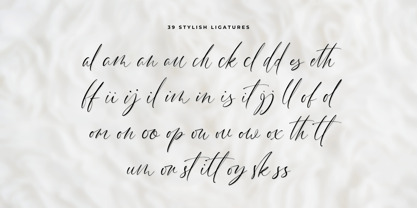 39 STYLISH LIGATURES
al am an au ch ck cl dd es eth
ff ii ij il im in is it gj ll of od
om on oo op ou ow ox th tt
um or st itt oy sk ss